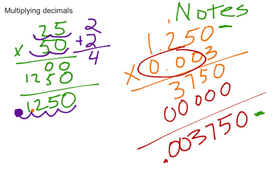 Multiplying decimals
Notes
25
x 50
00
1250
1250
2
+2
4
1.250
x 0.003
3750
00000
.003750